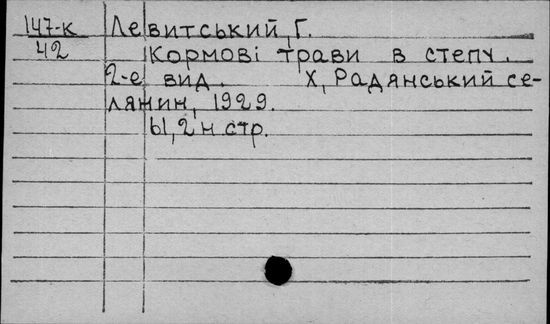 147-к Левитський, Г.
42 Кормові трави в степу.
2-е вид. Х, Радянський се-
лянин, 1929.
61, 2 н стр.